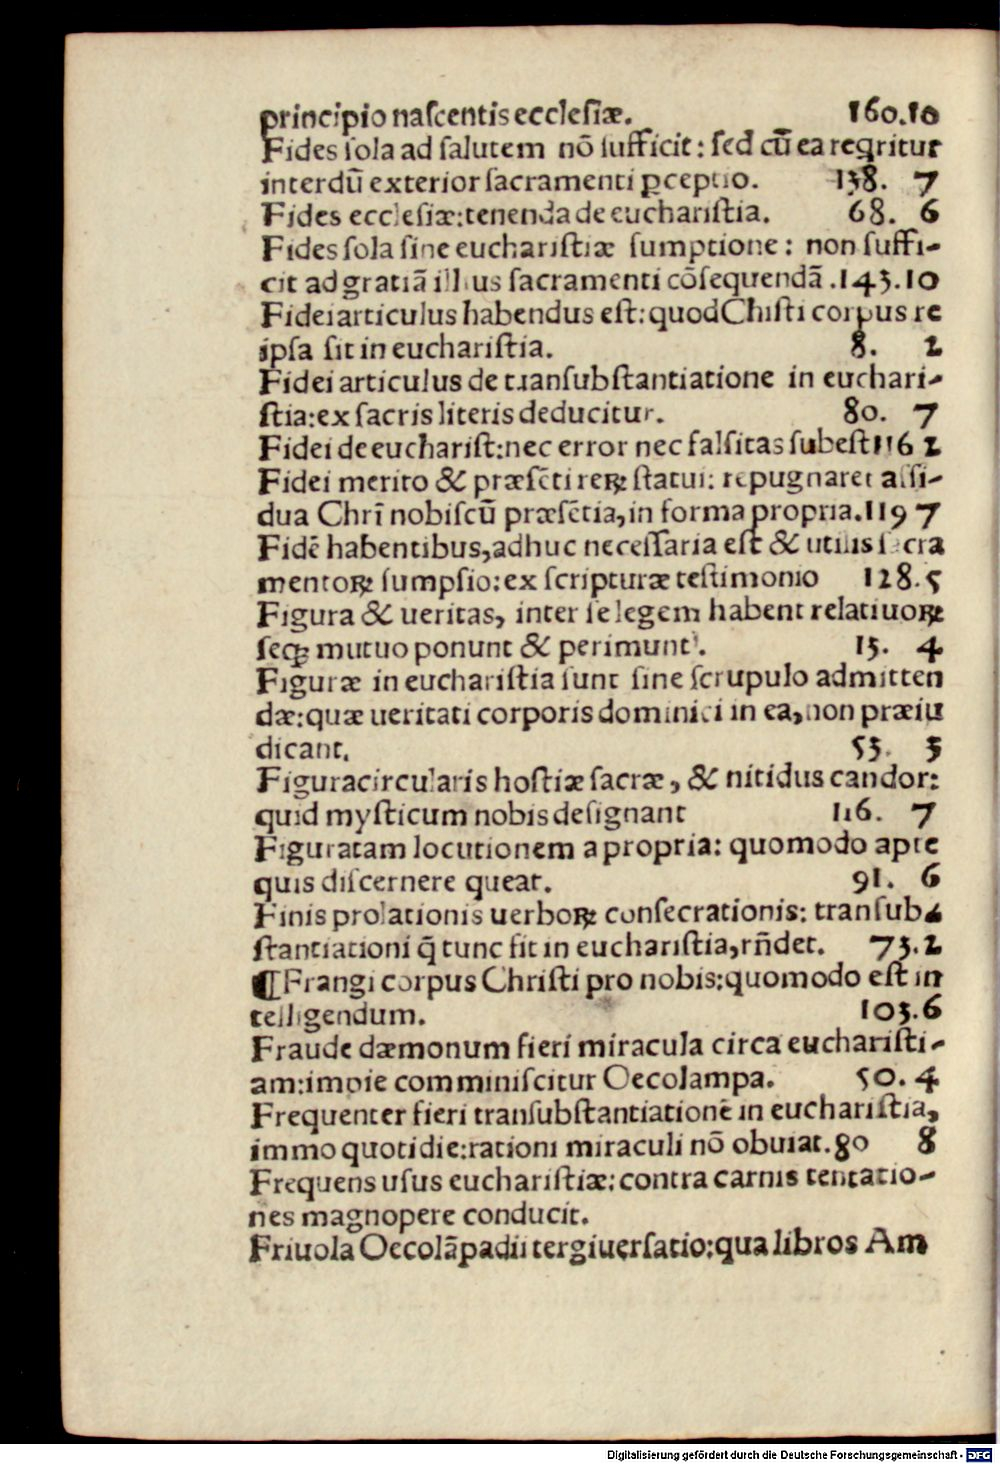 principio nascentis ecclesiæ. 160.10
Fides sola ad salutem nō sufficit: sed cū ea reqritur
interdū exterior sacramenti ꝑceptio. 138. 7
Fides ecclesiæ: tenenda de eucharistia. 68. 6
Fides sola sine eucharistiæ sumptione: non suffi-
cit ad gratiā illius sacramenti cōsequendā .143.10
Fidei articulus habendus est: quod Chisti corpus re
ipsa sit in eucharistia. 8. 2
Fidei articulus de transubstantiatione in euchari-
stia: ex sacris literis deducitur. 80. 7
Fidei de eucharist: nec error nec falsitas subest 116 2
Fidei merito & præsēti reꝝ statui: repugnaret assi-
dua Chrī nobiscū præsētia, in forma propria. 119 7
Fidē habentibus, adhuc necessaria est & utilis sacra
mentoꝝ sumpsio: ex scripturæ testimonio 128.5
Figura & ueritas, inter se legem habent relatiuoꝝ
seqꝫ mutuo ponunt & perimunt. 15. 4
Figuræ in eucharistia sunt sine scrupulo admitten
dæ: quæ ueritati corporis dominici in ea, non præiu
dicant. 53. 3
Figura circularis hostiæ sacræ, & nitidus candor:
quid mysticum nobis designant 116. 7
Figuratam locutionem a propria: quomodo apte
quis discernere queat. 91. 6
Finis prolationis uerboꝝ consecrationis: transub-
stantiationi q̄ tunc fit in eucharistia, rn̄det. 73.2
¶ Frangi corpus Christi pro nobis: quomodo est in
telligendum. 103.6
Fraude dæmonum fieri miracula circa eucharisti-
am: impie comminiscitur Oecolampa. 50.4
Frequenter fieri transubstantiationē in eucharistia,
immo quotidie: rationi miraculi nō obuiat. 80 8
Frequens usus eucharistiæ: contra carnis tentatio-
nes magnopere conducit.
Friuola Oecolāpadii tergiuersatio: qua libros Am
Digitalisierung gefördert durch die Deutsche Forschungsgemeinschaft - DFG